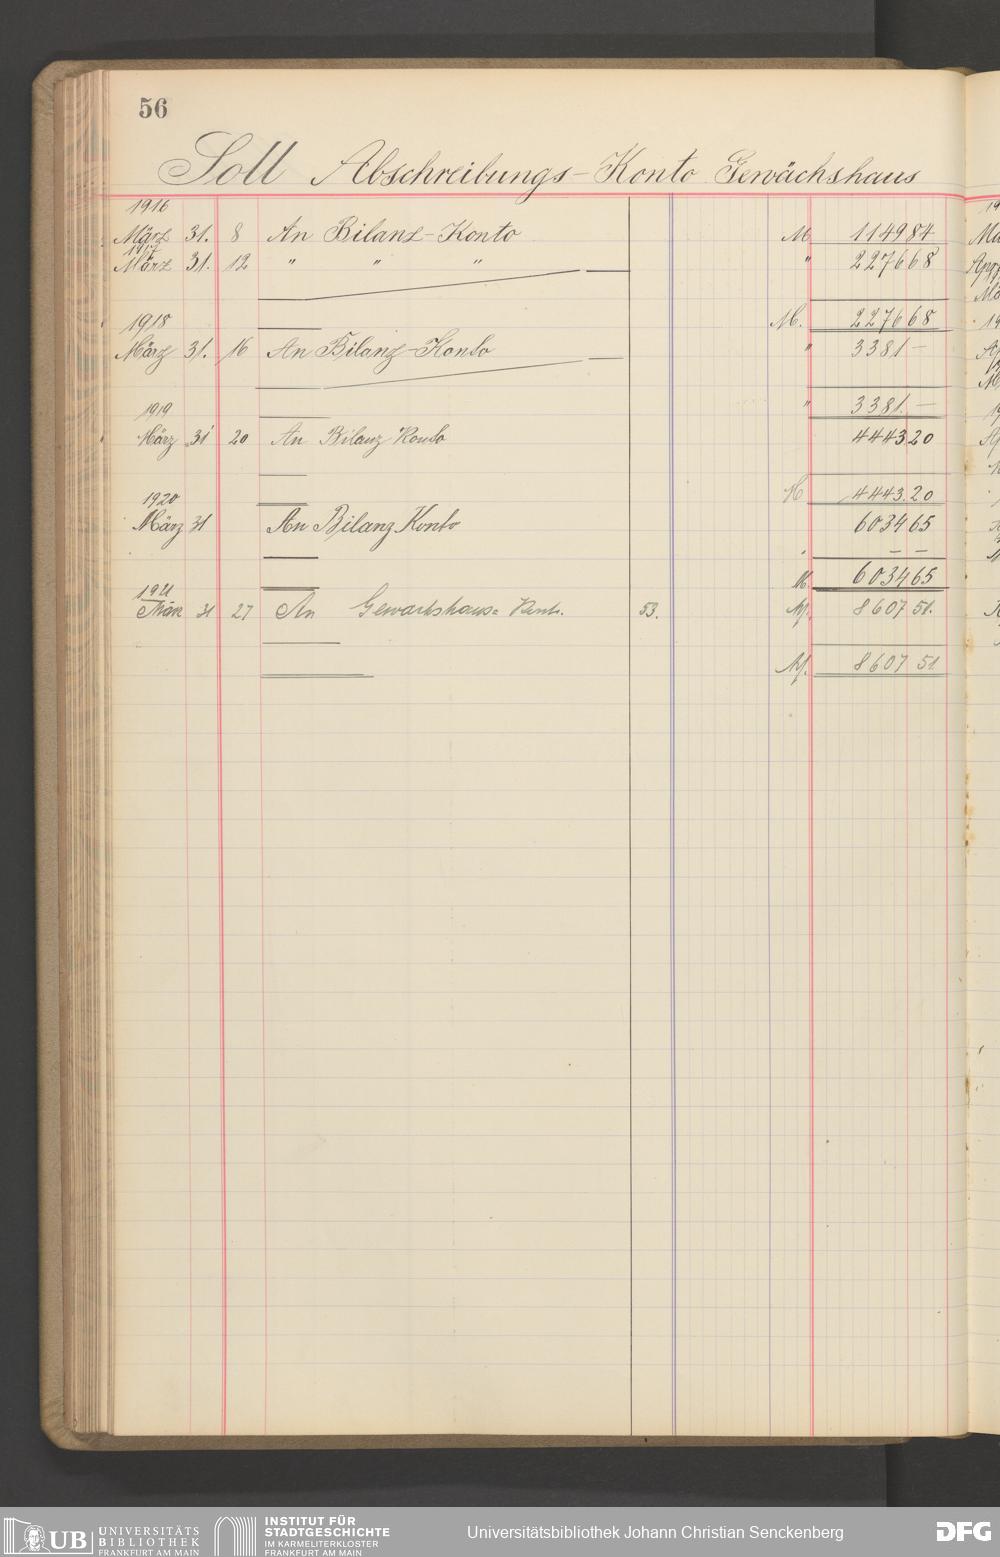 56
Soll Abschreibungs-Konto Gewächshaus
1916
März 31. 8 An Bilanz-Konto M 1149 84
1917
März 31. 12 " " " " 2276 68
1918 M. 2276 68
März 31. 16 An Bilanz-Konto " 3381 —
1919 " 3381. —
März 31 20 An Bilanz Konto 4443 20
1920 M 4443.20
März 31 An Bilanz Konto 6034 65
" — —
1921 M. 6034 65
März 31 27 An Gewächshaus= Konto. 53. M. 8607 51.
M. 8607 51.
UB UNIVERSITÄTS
BIBLIOTHEK
FRANKFURT AM MAIN
INSTITUT FÜR
STADTGESCHICHTE
IM KARMELITERKLOSTER
FRANKFURT AM MAIN
Universitätsbibliothek Johann Christian Senckenberg
DFG